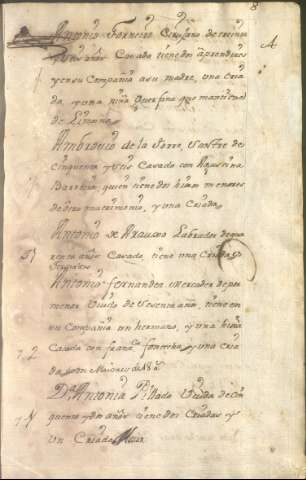 8
A
Antonio Forneiro Cirujano de treinta
y seis años Casado tiene dos aprendices
y en su Compañia a su madre, una Cria
da y una niña Huerfana que mantiene
de Limosna
Ambrosio de la Torre Sastre de
Cinquenta y seis Casado con Agustina
Barbeia quien tiene dos hijos menores
de otro matrimonio, y una Criada
Antonio de Araujo Labrador de qua
renta años Casado, tiene una Criada
Antonio Fernandez Mercader de por
menor Viudo de sesenta años, tiene en
su Compañia un hermano, y una hija
Casada con Franco. Fontenla, y una Cria
da, todos Maiores de 18 as.
Da. Antonia Pillado Viuda de Cin
quenta y dos años tiene dos Criadas y
Un Criado Maior